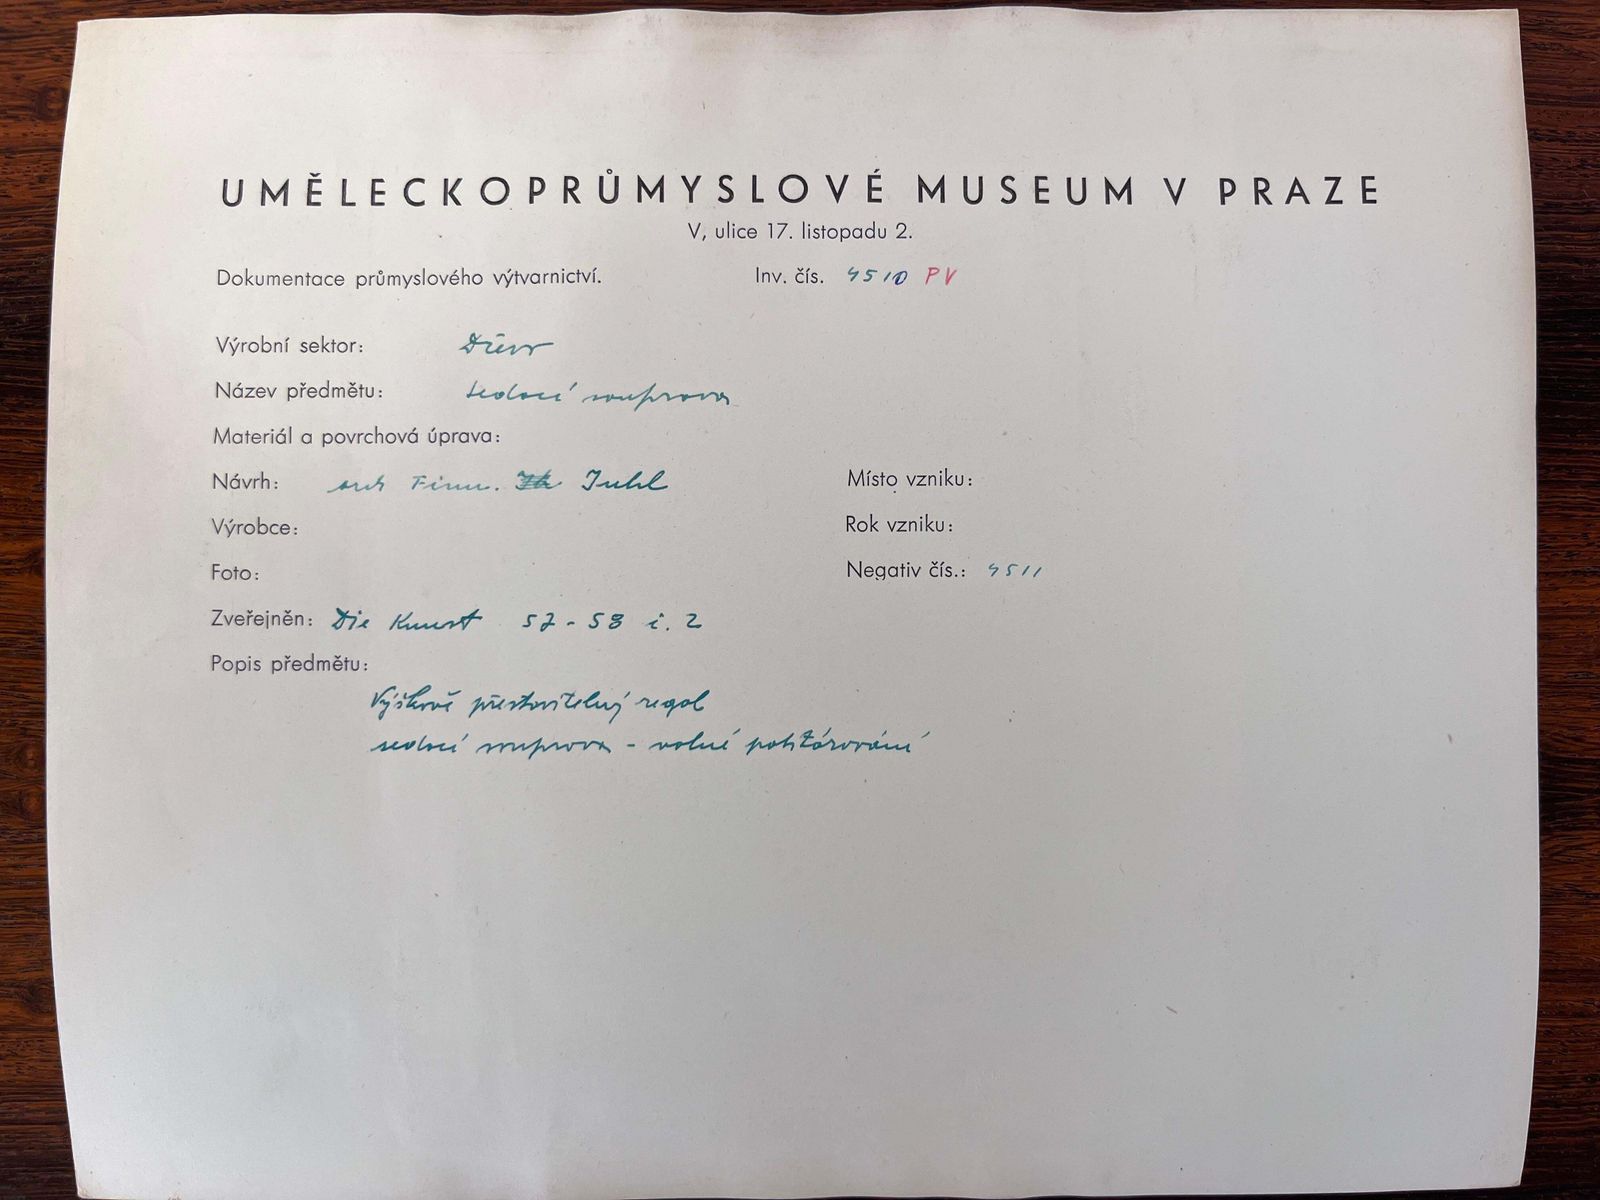 UMĚLECKOPRŮMYSLOVÉ MUSEUM V PRAZE
V, ulice 17. listopadu 2.
Dokumentace průmyslového výtvarnictví. Inv. čís. 4510 PV
Výrobní sektor: Dřevo
Název předmětu: sedací souprava
Materiál a povrchová úprava:
Návrh: arch Finn. Juhl Místo vzniku:
Výrobce: Rok vzniku:
Foto: Negativ čís.: 4511
Zveřejněn: Die Kunst 57-58 i. 2
Popis předmětu:
Výškově přestavitelný regál
sedací souprava - volné polštářování